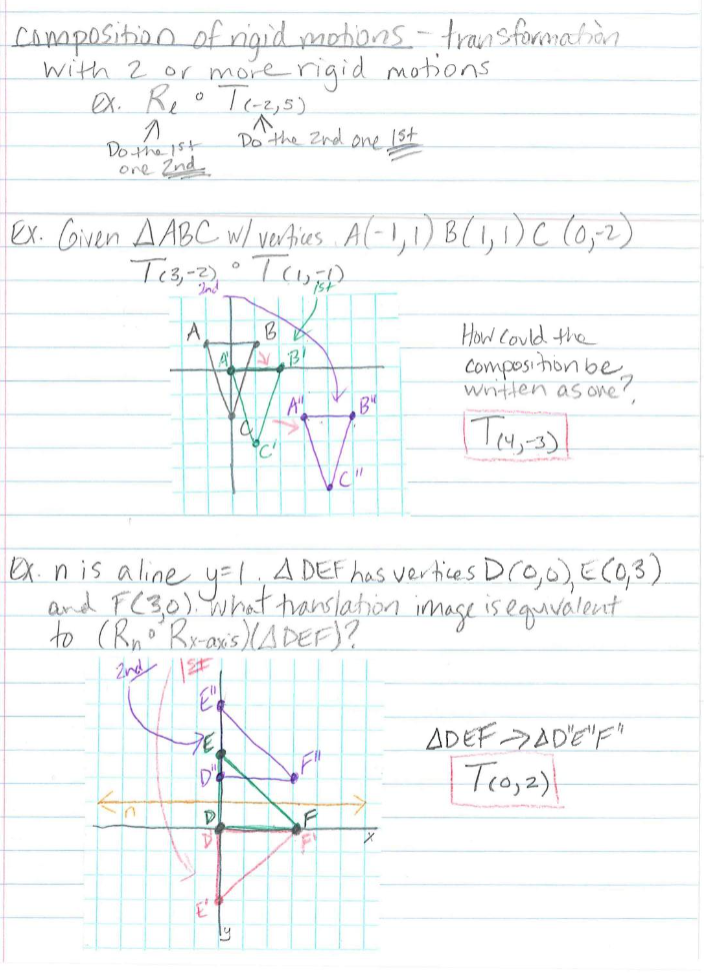 composition of rigid motions - transformation
with 2 or more rigid motions
Ex. Rℓ ∘ T(-2,5)
Do the 1st one 2nd
Do the 2nd one 1st
Ex. Given △ABC w/ vertices A(-1,1) B(1,1) C(0,-2)
T(3,-2) ∘ T(1,-1)
2nd 1st
A B
A' B'
C
C'
A" B"
C"
How could the
composition be
written as one?
T(4,-3)
Ex. n is a line y=1. △DEF has vertices D(0,0), E(0,3)
and F(3,0). What translation image is equivalent
to (Rn ∘ Rx-axis)(△DEF)?
2nd 1st
E"
E
D" F"
n
D F
D' F' x
E'
y
△DEF → △D"E"F"
T(0,2)